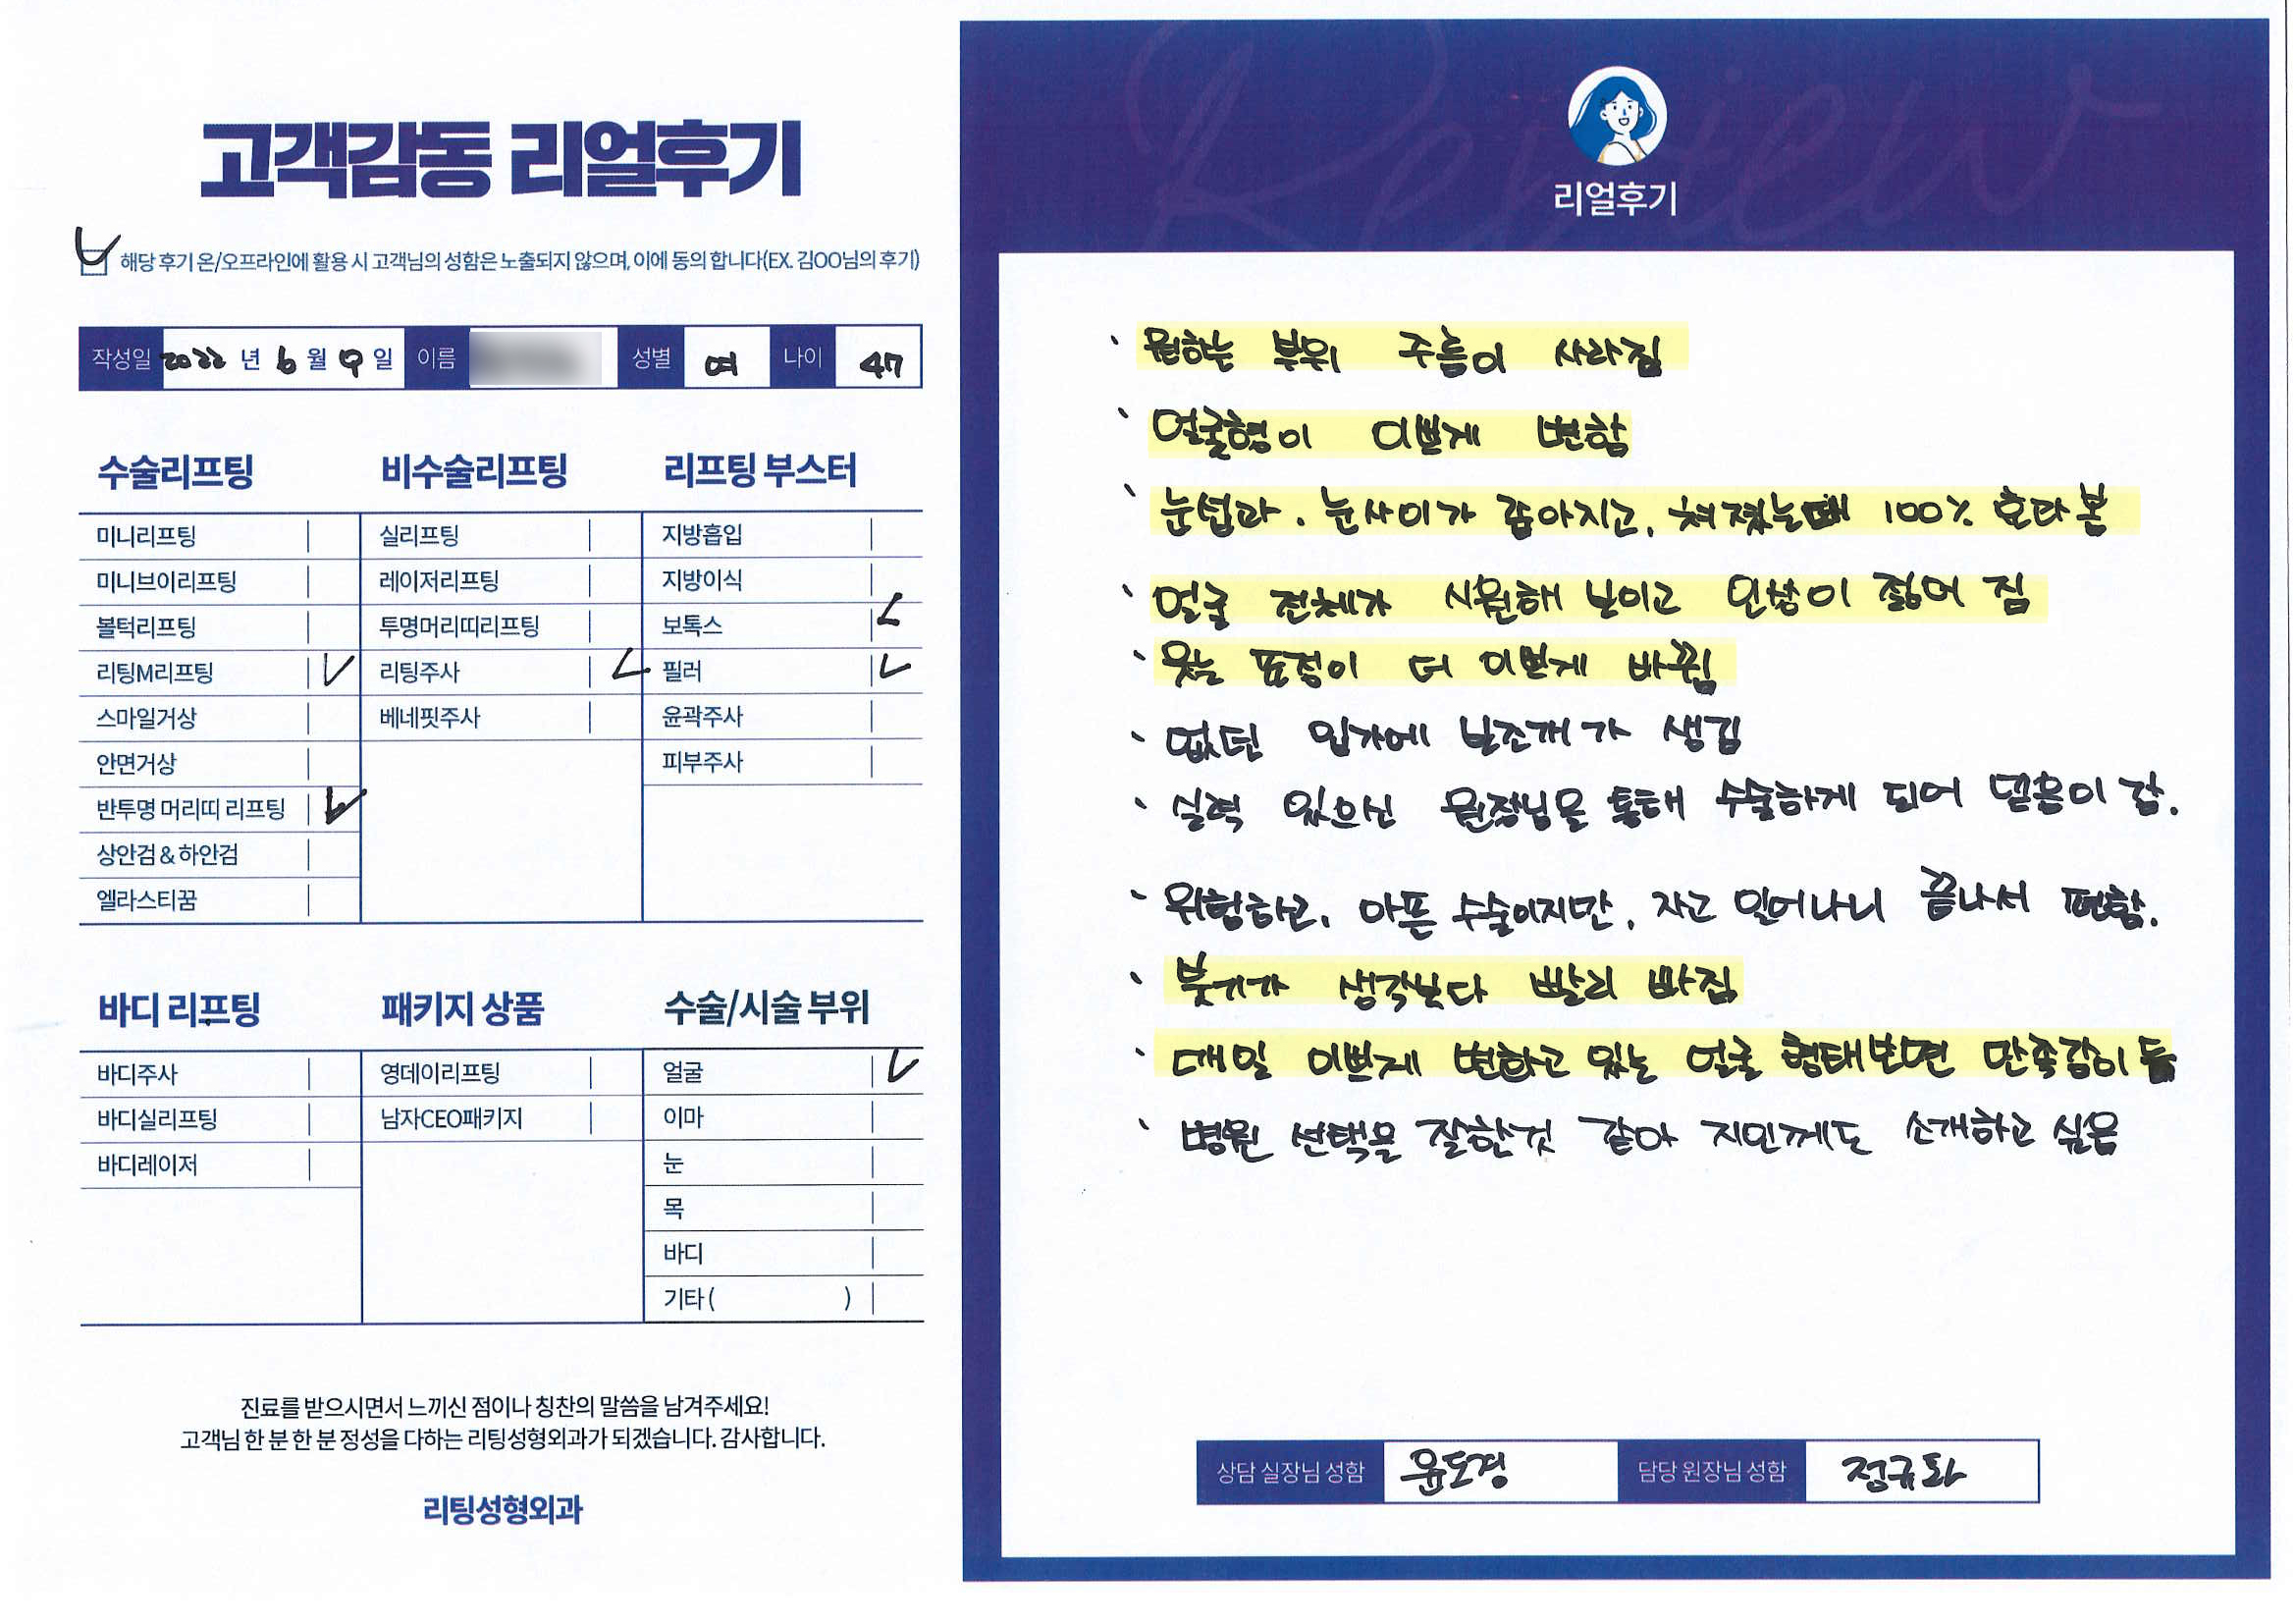 고객감동 리얼후기
해당 후기 온/오프라인에 활용 시 고객님의 성함은 노출되지 않으며, 이에 동의 합니다(EX. 김OO님의 후기)
작성일 2022 년 6 월 9 일 이름 성별 여 나이 47
수술리프팅
미니리프팅
미니브이리프팅
볼턱리프팅
리팅M리프팅
스마일거상
안면거상
반투명 머리띠 리프팅
상안검 & 하안검
엘라스티꿈
비수술리프팅
실리프팅
레이저리프팅
투명머리띠리프팅
리팅주사
베네핏주사
리프팅 부스터
지방흡입
지방이식
보톡스
필러
윤곽주사
피부주사
바디 리프팅
바디주사
바디실리프팅
바디레이저
패키지 상품
영데이리프팅
남자CEO패키지
수술/시술 부위
얼굴
이마
눈
목
바디
기타 ( )
진료를 받으시면서 느끼신 점이나 칭찬의 말씀을 남겨주세요!
고객님 한 분 한 분 정성을 다하는 리팅성형외과가 되겠습니다. 감사합니다.
리팅성형외과
Review
리얼후기
· 원하는 부위 주름이 사라짐
· 얼굴형이 이쁘게 변함
· 눈썹과, 눈사이가 좁아지고, 쳐졌는데 100% 효과 봄
· 얼굴 전체가 시원해 보이고 인상이 젊어 짐
· 웃는 표정이 더 이쁘게 바뀜
· 없던 입가에 보조개가 생김
· 실력 있으신 원장님을 통해 수술하게 되어 믿음이 감.
· 위험하고, 아픈 수술이지만, 자고 일어나니 끝나서 편함.
· 붓기가 생각보다 빨리 빠짐
· 매일 이쁘게 변하고 있는 얼굴 형태보면 만족감이 듬
· 병원 선택을 잘한것 같아 지인께도 소개하고 싶음
상담 실장님 성함 윤도경 담당 원장님 성함 정규화